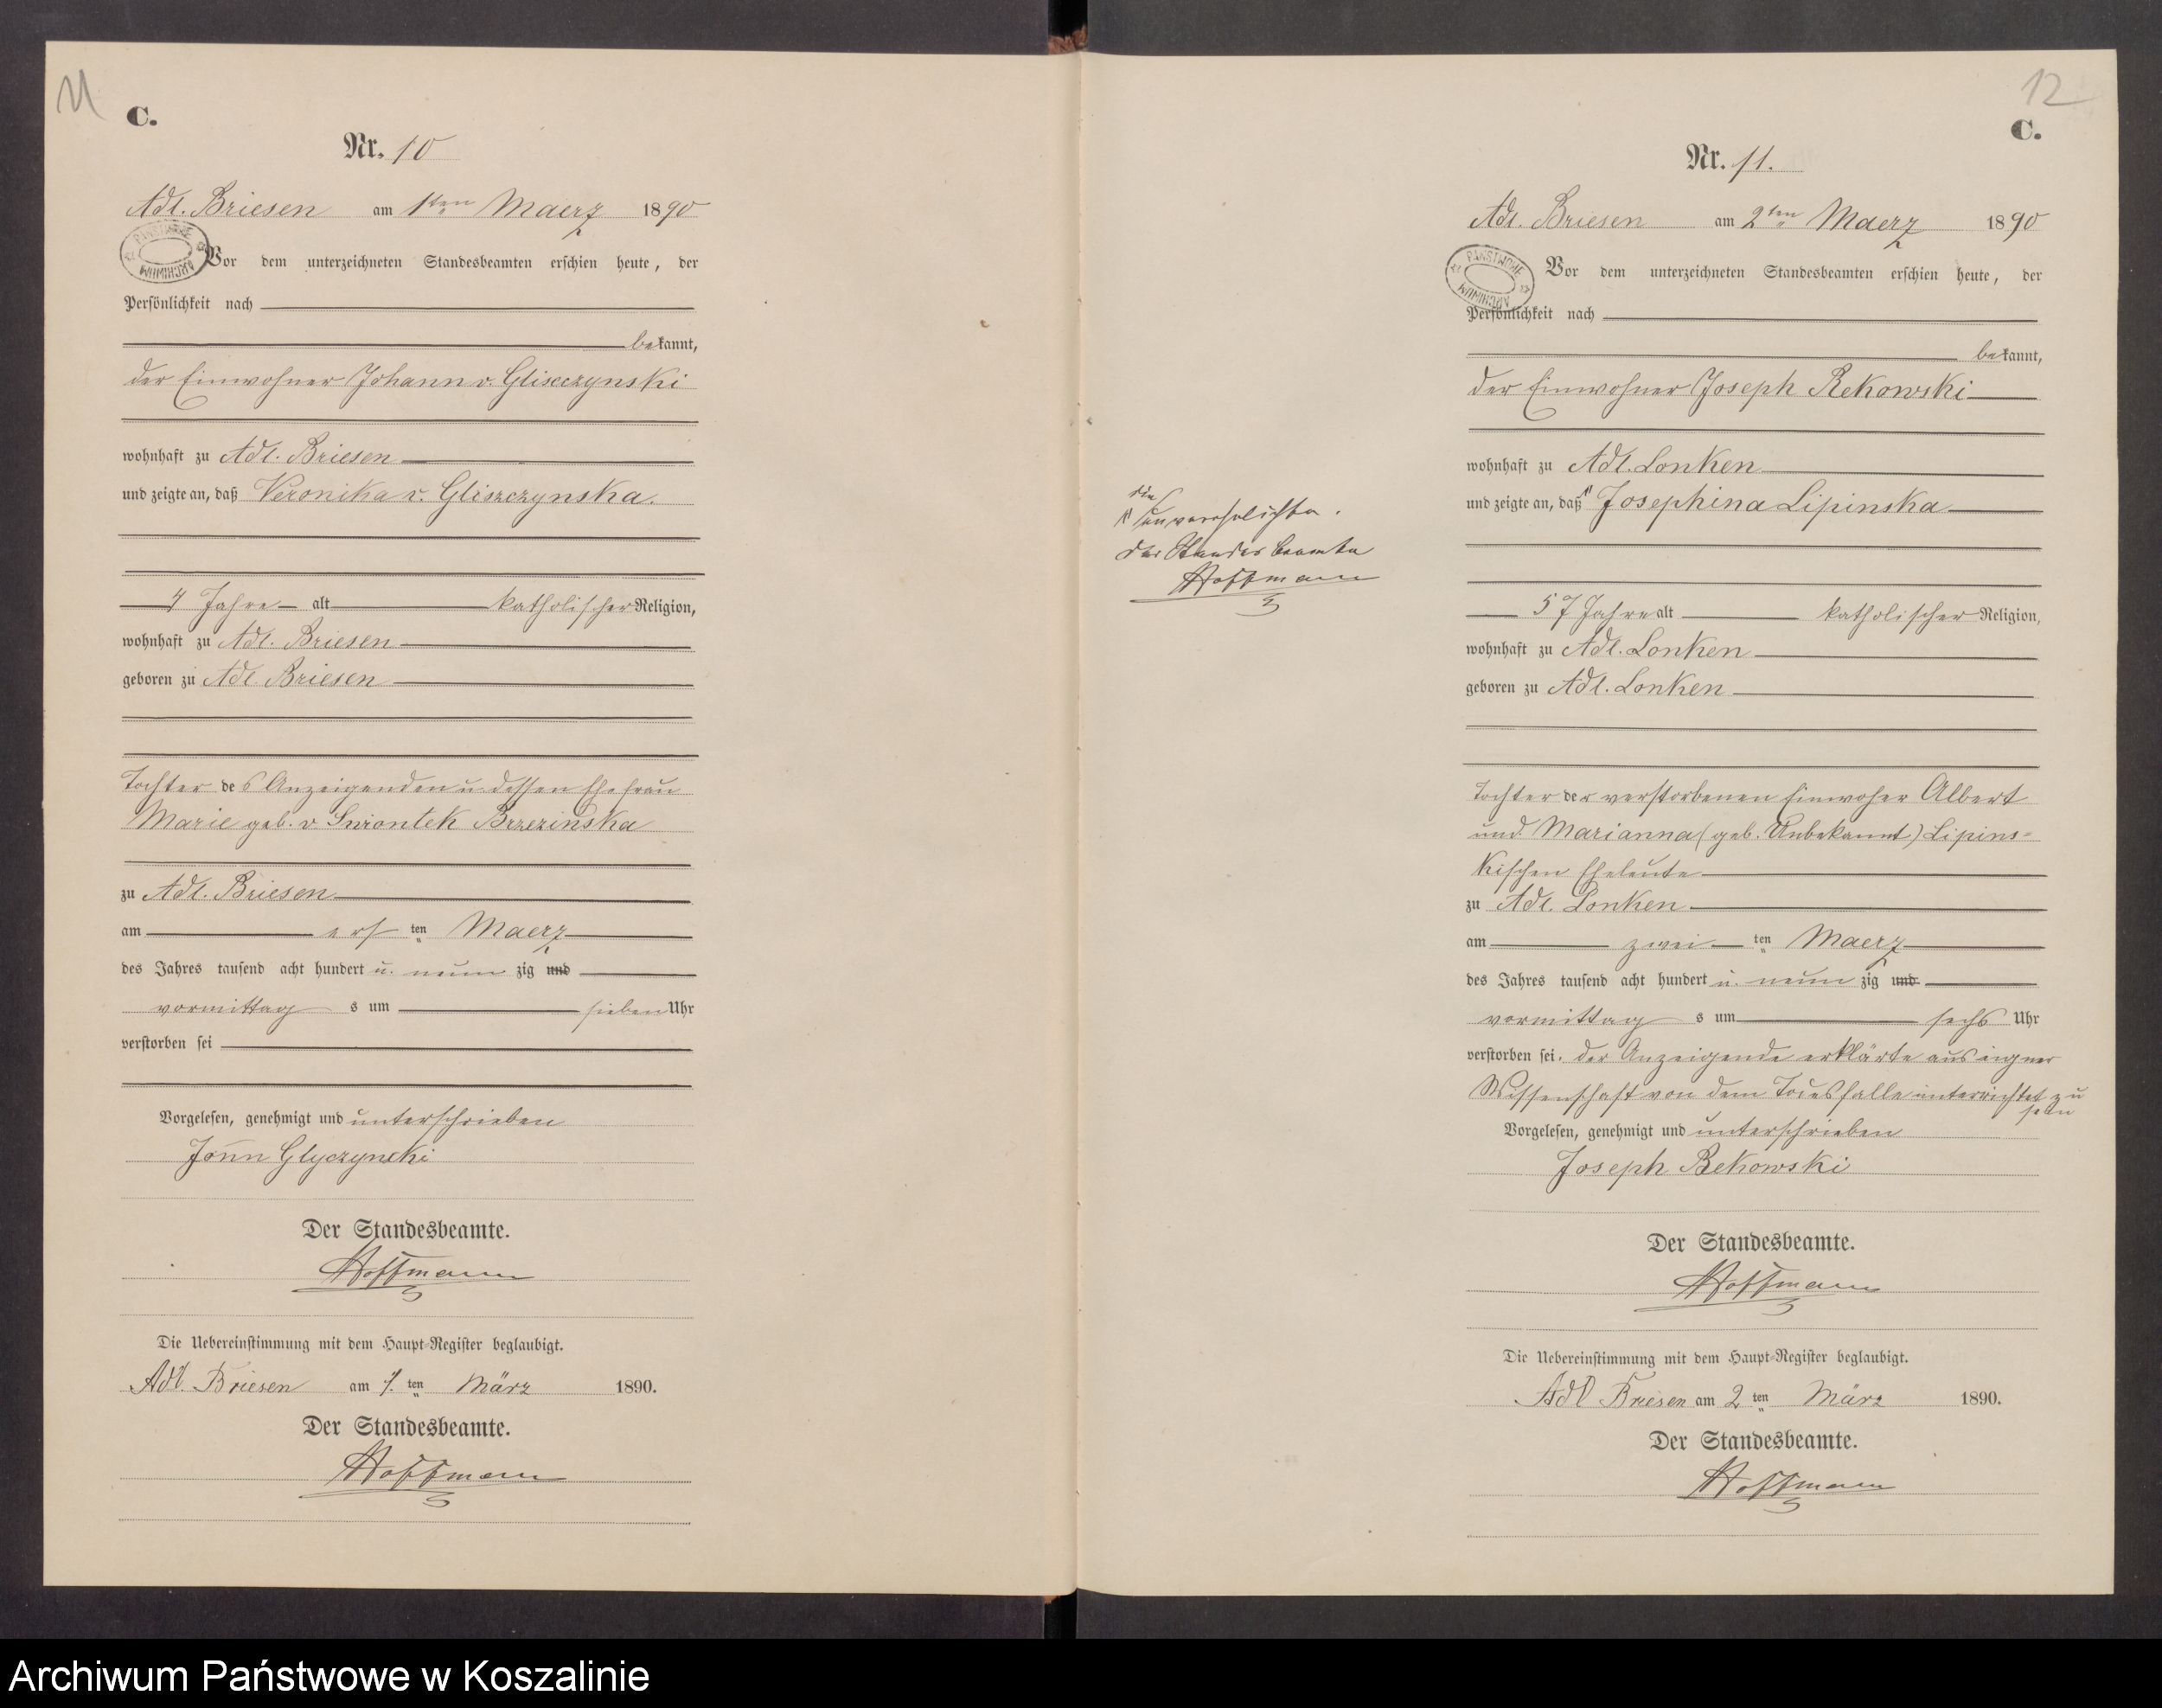 11
C.
Nr. 10
Adl. Briesen am 1ten Maerz 1890
PAŃSTWOWE ARCHIWUM
Vor dem unterzeichneten Standesbeamten erschien heute, der
Persönlichkeit nach
bekannt,
der Einwohner Johann v. Glisczynski
wohnhaft zu Adl. Briesen
und zeigte an, daß Veronika v. Gliszczynska.
4 Jahre alt katholischer Religion,
wohnhaft zu Adl. Briesen
geboren zu Adl. Briesen
Tochter des Anzeigenden u. dessen Ehefrau
Marie geb. v Swiontek Brzezinska
zu Adl. Briesen
am ersten Maerz
des Jahres tausend acht hundert u. neunzig und
vormittags um sieben Uhr
verstorben sei
Vorgelesen, genehmigt und unterschrieben
Johnn Glyczyncki
Der Standesbeamte.
Hoffmann
Die Uebereinstimmung mit dem Haupt-Register beglaubigt.
Adl. Briesen am 1. ten März 1890.
Der Standesbeamte.
Hoffmann
12
C.
Nr. 11.
Adl. Briesen am 2ten Maerz 1890
PAŃSTWOWE ARCHIWUM
Vor dem unterzeichneten Standesbeamten erschien heute, der
Persönlichkeit nach
bekannt,
der Einwohner Joseph Rekowski
wohnhaft zu Adl. Lonken
und zeigte an, daß Josephina Lipinska
die
unverehelichte.
Der Standesbeamte
Hoffmann
57 Jahre alt katholischer Religion,
wohnhaft zu Adl. Lonken
geboren zu Adl. Lonken
Tochter der verstorbenen Einwoher Albert
und Marianna (geb. Unbekannt) Lipins-
kischen Eheleute
zu Adl. Lonken
am zweiten Maerz
des Jahres tausend acht hundert u. neunzig und
vormittags um sechs Uhr
verstorben sei. Der Anzeigende erklärte aus eigner
Wissenschaft von dem Todesfalle unterrichtet zu
sein
Vorgelesen, genehmigt und unterschrieben
Joseph Rekowski
Der Standesbeamte.
Hoffmann
Die Uebereinstimmung mit dem Haupt-Register beglaubigt.
Adl Briesen am 2 ten März 1890.
Der Standesbeamte.
Hoffmann
Archiwum Państwowe w Koszalinie